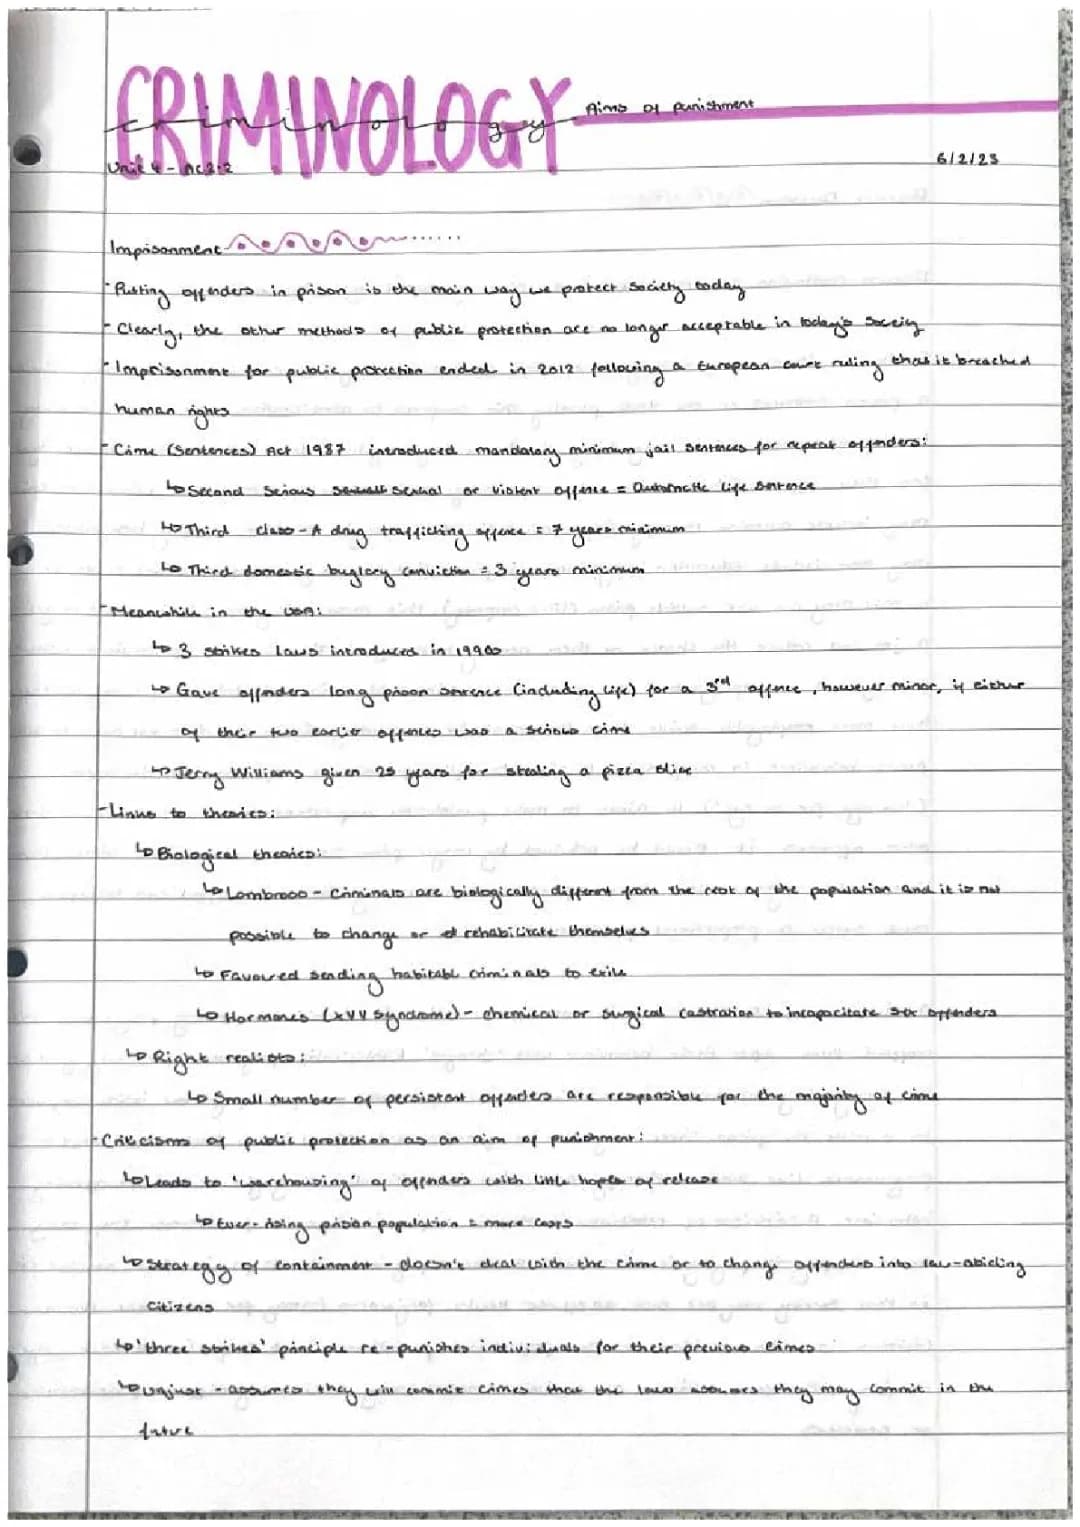 CRIMINOLOGY
criminology
Aims of punishment
Unit 4 - AC2:2
6/2/23
Imprisonment
- Putting offenders in prison is the main way we protect society today
- Clearly, the other methods of public protection are no longer acceptable in today's society
- Imprisonment for public protection ended in 2012 following a European court ruling that it breached
human rights
- Crime (Sentences) Act 1987 introduced mandatory minimum jail sentences for repeat offenders:
↳ Second serious sexual or violent offence = Automatic life sentence
↳ Third class-A drug trafficking offence = 7 years minimum
↳ Third domestic buglary conviction = 3 years minimum
- Meanwhile in the USA:
↳ 3 strikes laws introduced in 1990s
↳ Gave offenders long prison sentence (including life) for a 3rd offence, however minor, if either
of their two earlier offences was a serious crime
↳ Jerry Williams given 25 years for stealing a pizza slice
- Links to theories:
↳ Biological theories:
↳ Lombroso - Criminals are biologically different from the rest of the population and it is not
possible to change or rehabilitate themselves
↳ Favoured sending habitable criminals to exile
↳ Hormones (XYY Syndrome) - chemical or surgical castration to incapacitate sex offenders
↳ Right realists:
↳ Small number of persistant offenders are responsible for the majority of crime
- Criticisms of public protection as an aim of punishment:
↳ Leads to 'warehousing' of offenders with little hopes of release
↳ Ever-rising prison population = more costs
↳ Strategy of containment - doesn't deal with the crime or to change offenders into law-abiding
citizens
↳ 'three strikes' principle re-punishes individuals for their previous crimes
↳ Unjust - assumes they will commit crimes that the law assumes they may commit in the
future